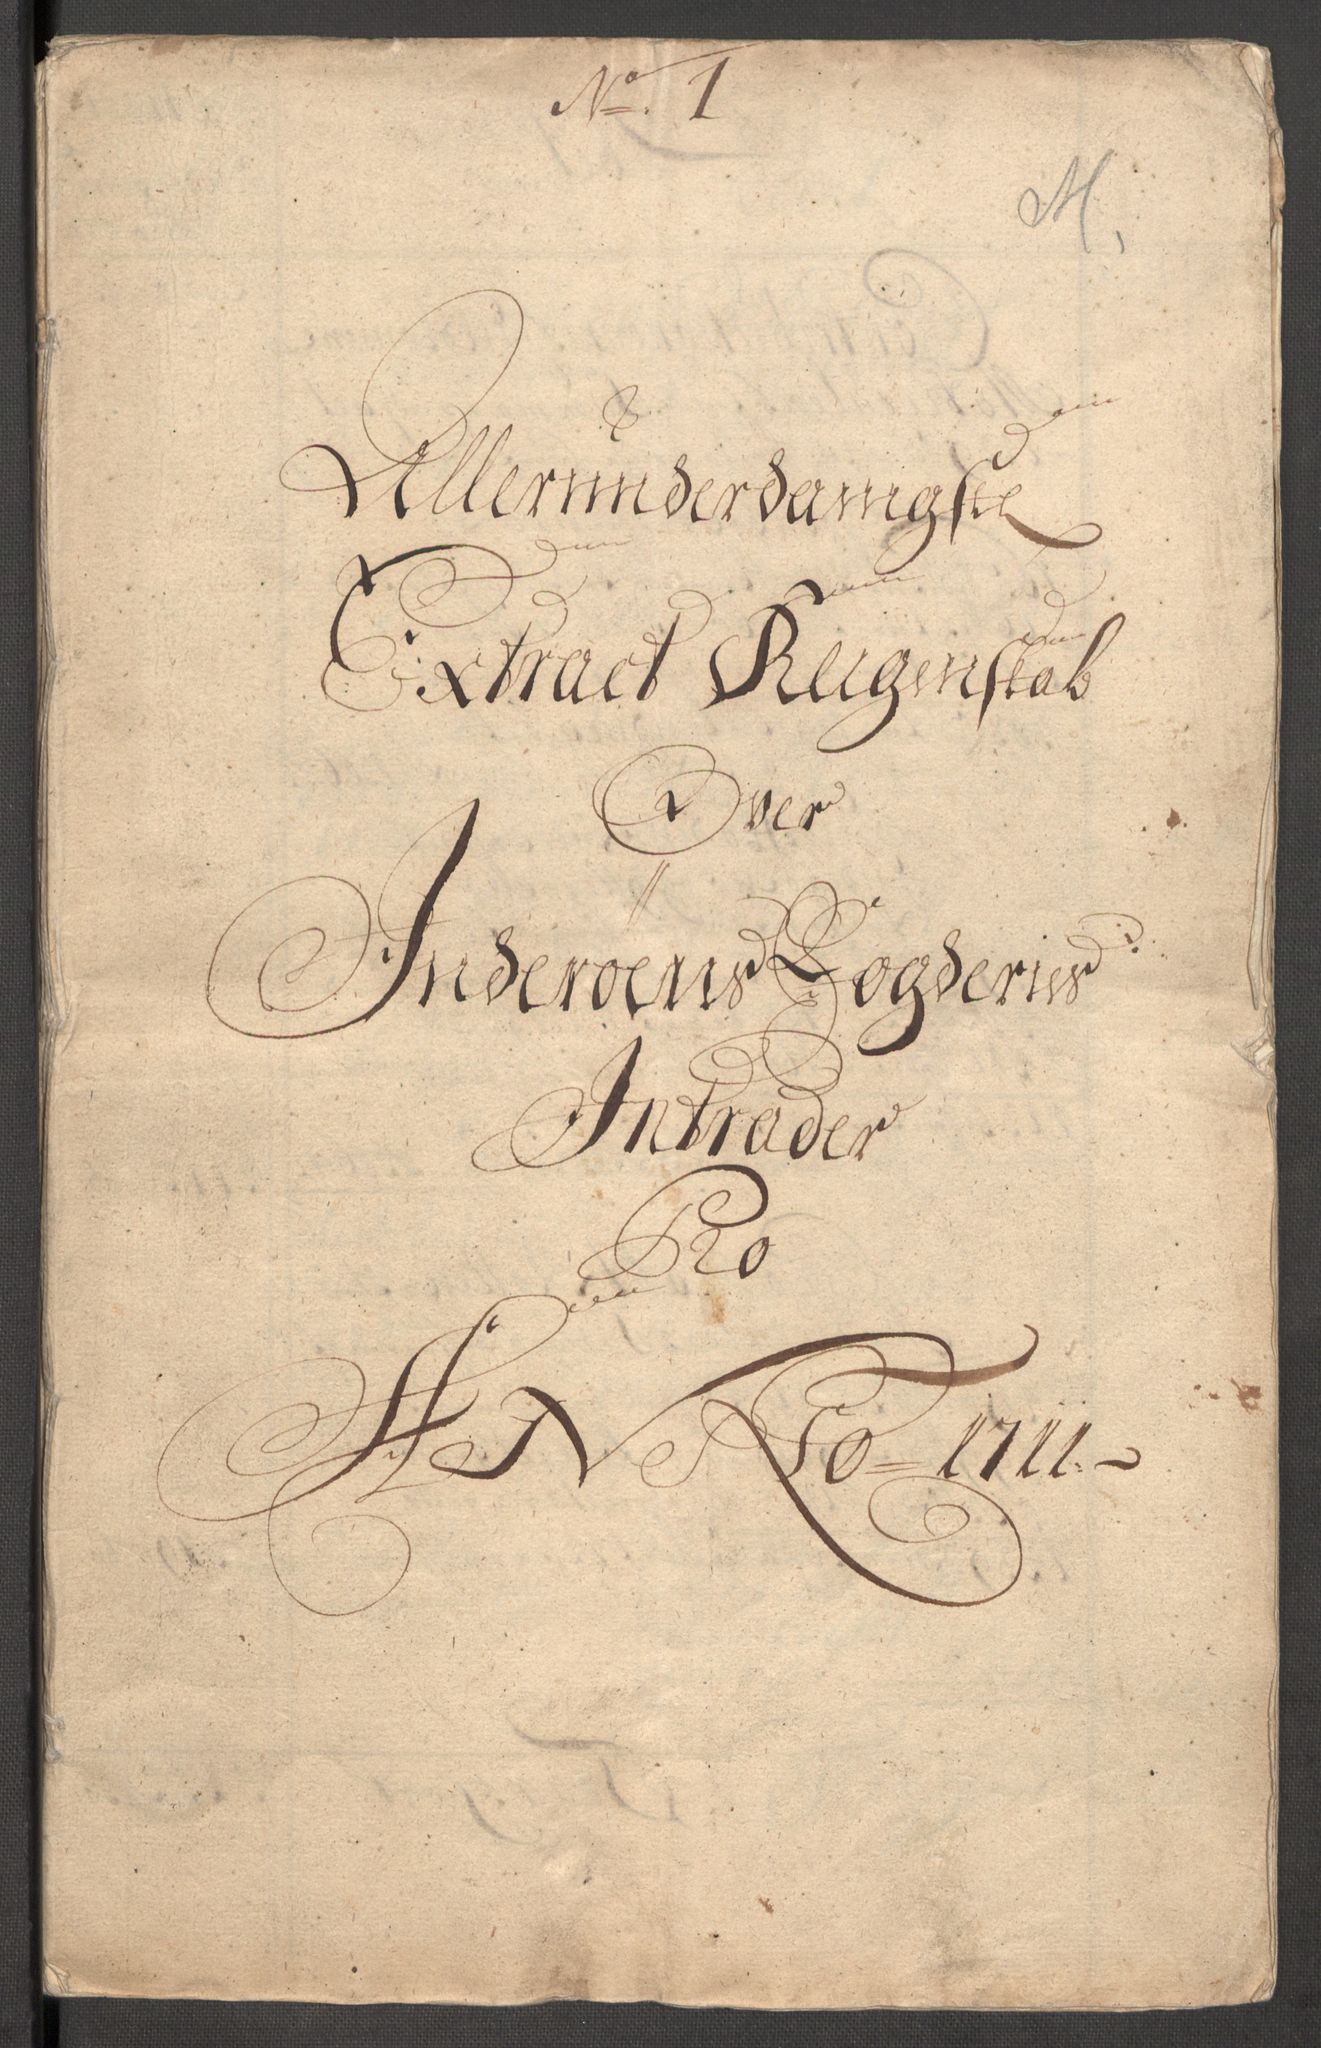 No. 1
M,
Allerunderdanigste
Extract Regenskab
Over
Inderoens Fogderies
Intrader
Pro
ANNo 1711